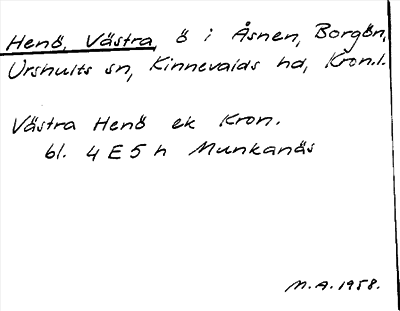 Henö, Västra, ö i Åsnen, Borgön,
Urshults sn, Kinnevalds hd, Kron.l.
Västra Henö ek Kron.
bl. 4 E 5 h Munkanäs
M.A. 1958.